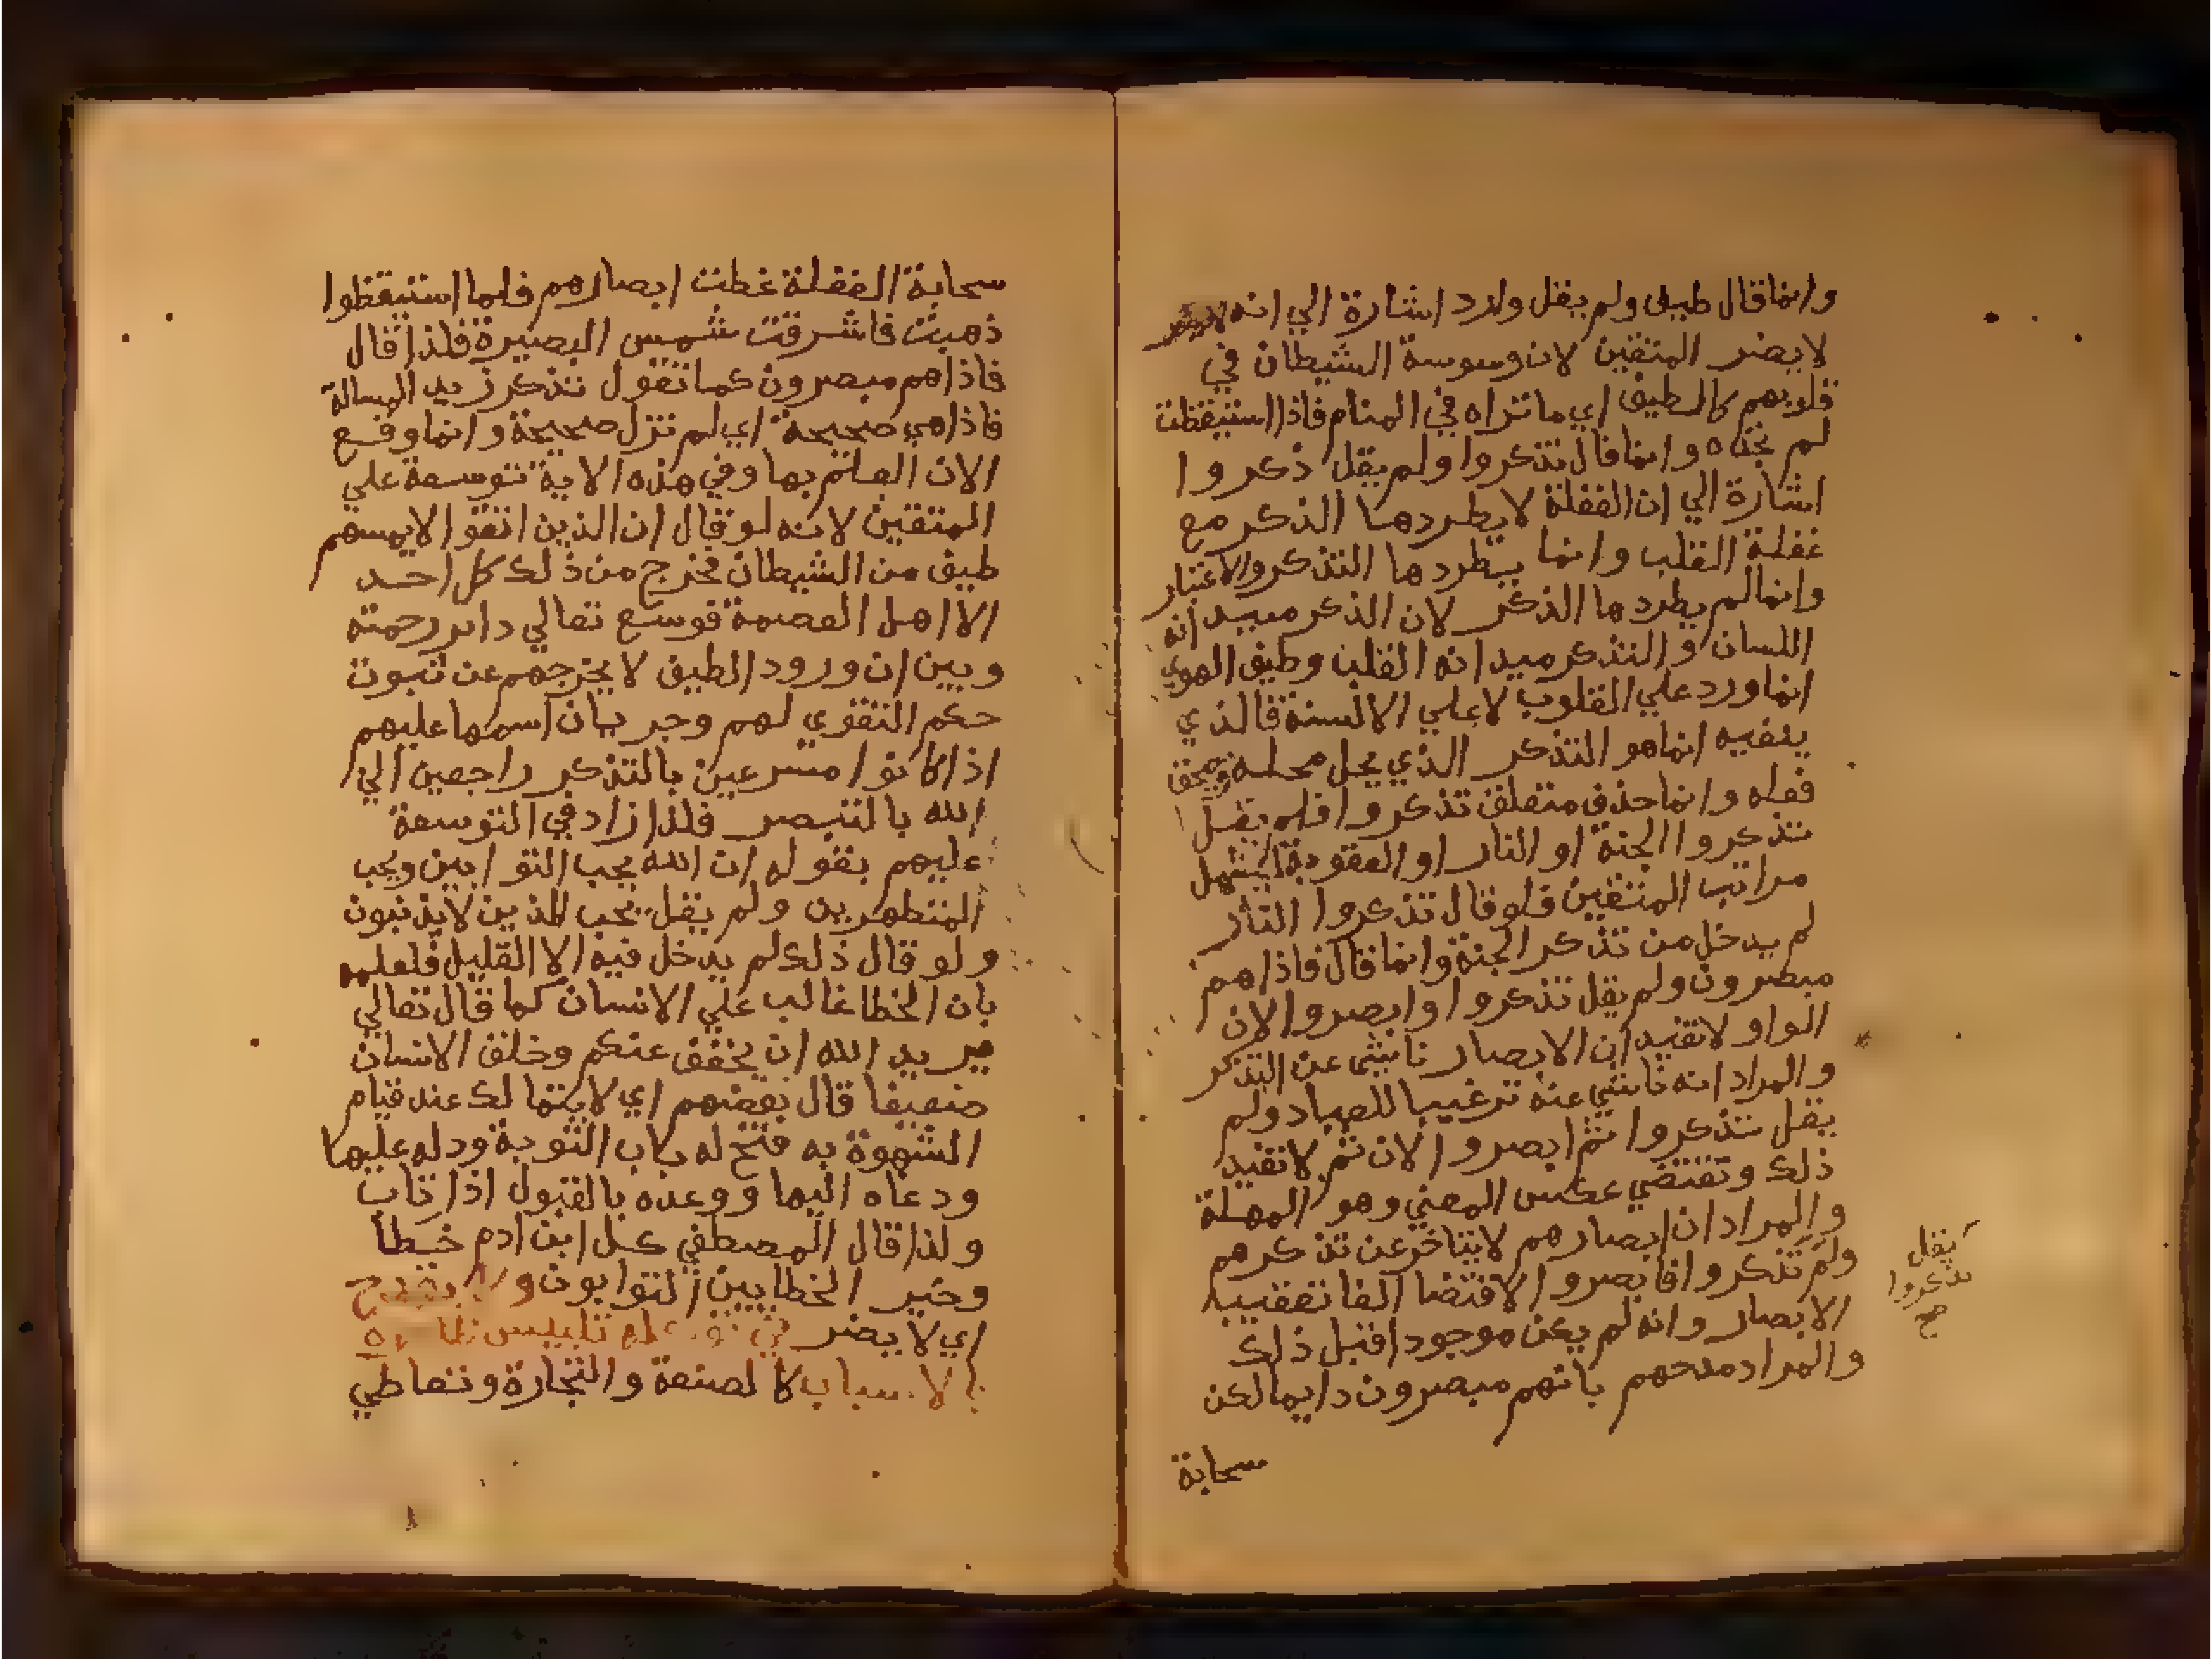 وانما قال طيف ولم يقل وارد اشارة الي انه
لا يضر المتقين لان وسوسة الشيطان في
قلوبهم كالطيف اي ما تراه في المنام فاذا استيقظت
لم تجده وانما قال تذكروا ولم يقل ذكروا
اشارة الي ان الغفلة لا يطردها الذكر مع
غفلة القلب وانما يطردها التذكر والاعتبار
وانما لم يطردها الذكر لان الذكر ميدانه
اللسان والتذكر ميدانه القلب وطيف الهوي
انما ورد علي القلوب لا علي الالسنة فالذي
ينفيه انما هو التذكر الذي يحل محله ويمحق
فعله وانما حذف متعلق تذكروا فلم يقل
تذكروا الجنة او النار او العقوبة ليشمل
مراتب المتقين فلو قال تذكروا النار
لم يدخل من تذكر الجنة وانما قال فاذا هم
مبصرون ولم يقل تذكروا وابصروا لان
الواو لا تفيد ان الابصار ناشي عن التذكر
والمراد انه ناشي عنه ترغيبا للعباد ولم
يقل تذكروا ثم ابصروا لان ثم لا تفيد
ذلك وتقتضي عكس المعني وهو المهلة
والمراد ان ابصارهم لا يتاخر عن تذكرهم
ولم تذكروا فابصروا لاقتضا الفا تعقيب
الابصار وانه لم يكن موجودا قبل ذلك
والمراد مدحهم بانهم مبصرون دايما لكن
سحابة
يقل
تذكروا
صح
سحابة الغفلة غطت ابصارهم فلما استيقظوا
ذهبت فاشرقت شمس البصيرة فلذا قال
فاذا هم مبصرون كما تقول تذكر زيد المسالة
فاذا هي صحيحة اي لم تزل صحيحة وانما وقع
الان العلم بها وفي هذه الاية توسعة علي
المتقين لانه لو قال ان الذين اتقوا لا يمسهم
طيف من الشيطان لخرج من ذلك كل احد
الا اهل العصمة فوسع تعالي داير رحمته
وبين ان ورود الطيف لا يخرجهم عن ثبوت
حكم التقوي لهم وجريان اسمها عليهم
اذا كانوا مسرعين بالتذكر راجعين الي
الله بالتبصر فلذا زاد في التوسعة
عليهم بقوله ان الله يحب التوابين ويحب
المتطهرين ولم يقل يحب الذين لا يذنبون
ولو قال ذلك لم يدخل فيه الا القليل فلعلمه
بان الخطا غالب علي الانسان كما قال تعالي
يريد الله ان يخفف عنكم وخلق الانسان
ضعيفا قال بعضهم اي لا يتمالك عند قيام
الشهوة به فتح له باب التوبة ودله عليها
ودعاه اليها ووعده بالقبول اذا تاب
ولذا قال المصطفي كل ابن ادم خطا
وخير الخطايين التوابون ولا يقدح
اي لا يضر في تلبيس
بالاسباب كالصنعة والتجارة وتعاطي